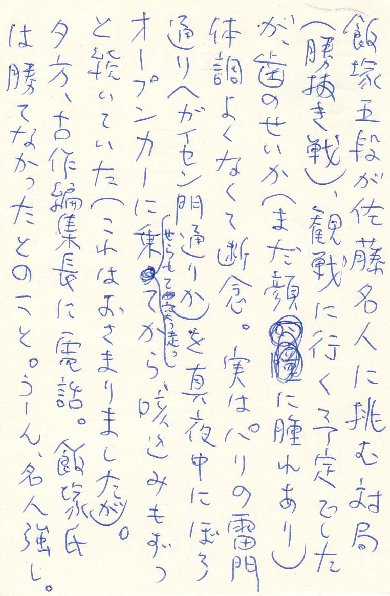 飯塚五段が佐藤名人に挑む対局
(勝抜き戦)、観戦に行く予定でした
が、歯のせいか(まだ顔に腫れあり)
体調よくなくて断念。実はパリの雷門
通り(ガイセン門通りか)を真夜中にぼろ
オープンカーに乗せられて走ってから、咳込みもずっ
と続いていた(これはおさまりましたが)。
夕方、古作編集長に電話。飯塚氏
は勝てなかったとのこと。うーん、名人強し。